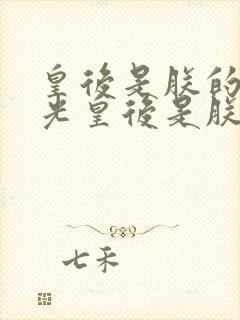 皇後是朕的
光皇後是朕
七禾